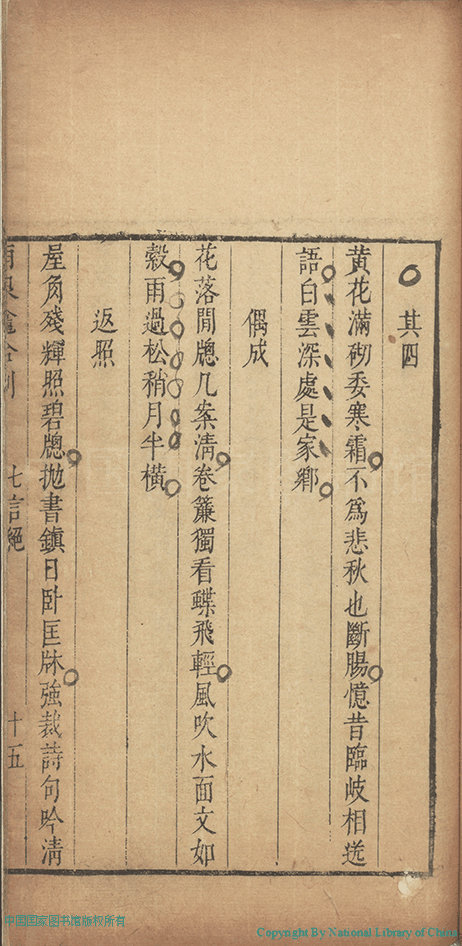 其四
黃花滿砌委寒霜不爲悲秋也斷腸憶昔臨岐相送
語白雲深處是家鄉
偶成
花落閒牕几案淸卷簾獨看蝶飛輕風吹水面文如
縠雨過松稍月半橫
返照
屋角殘輝照碧牕拋書鎭日卧匡牀強裁詩句吟淸
七言絕
十五
中国国家图书馆版权所有
Copyright By National Library of China